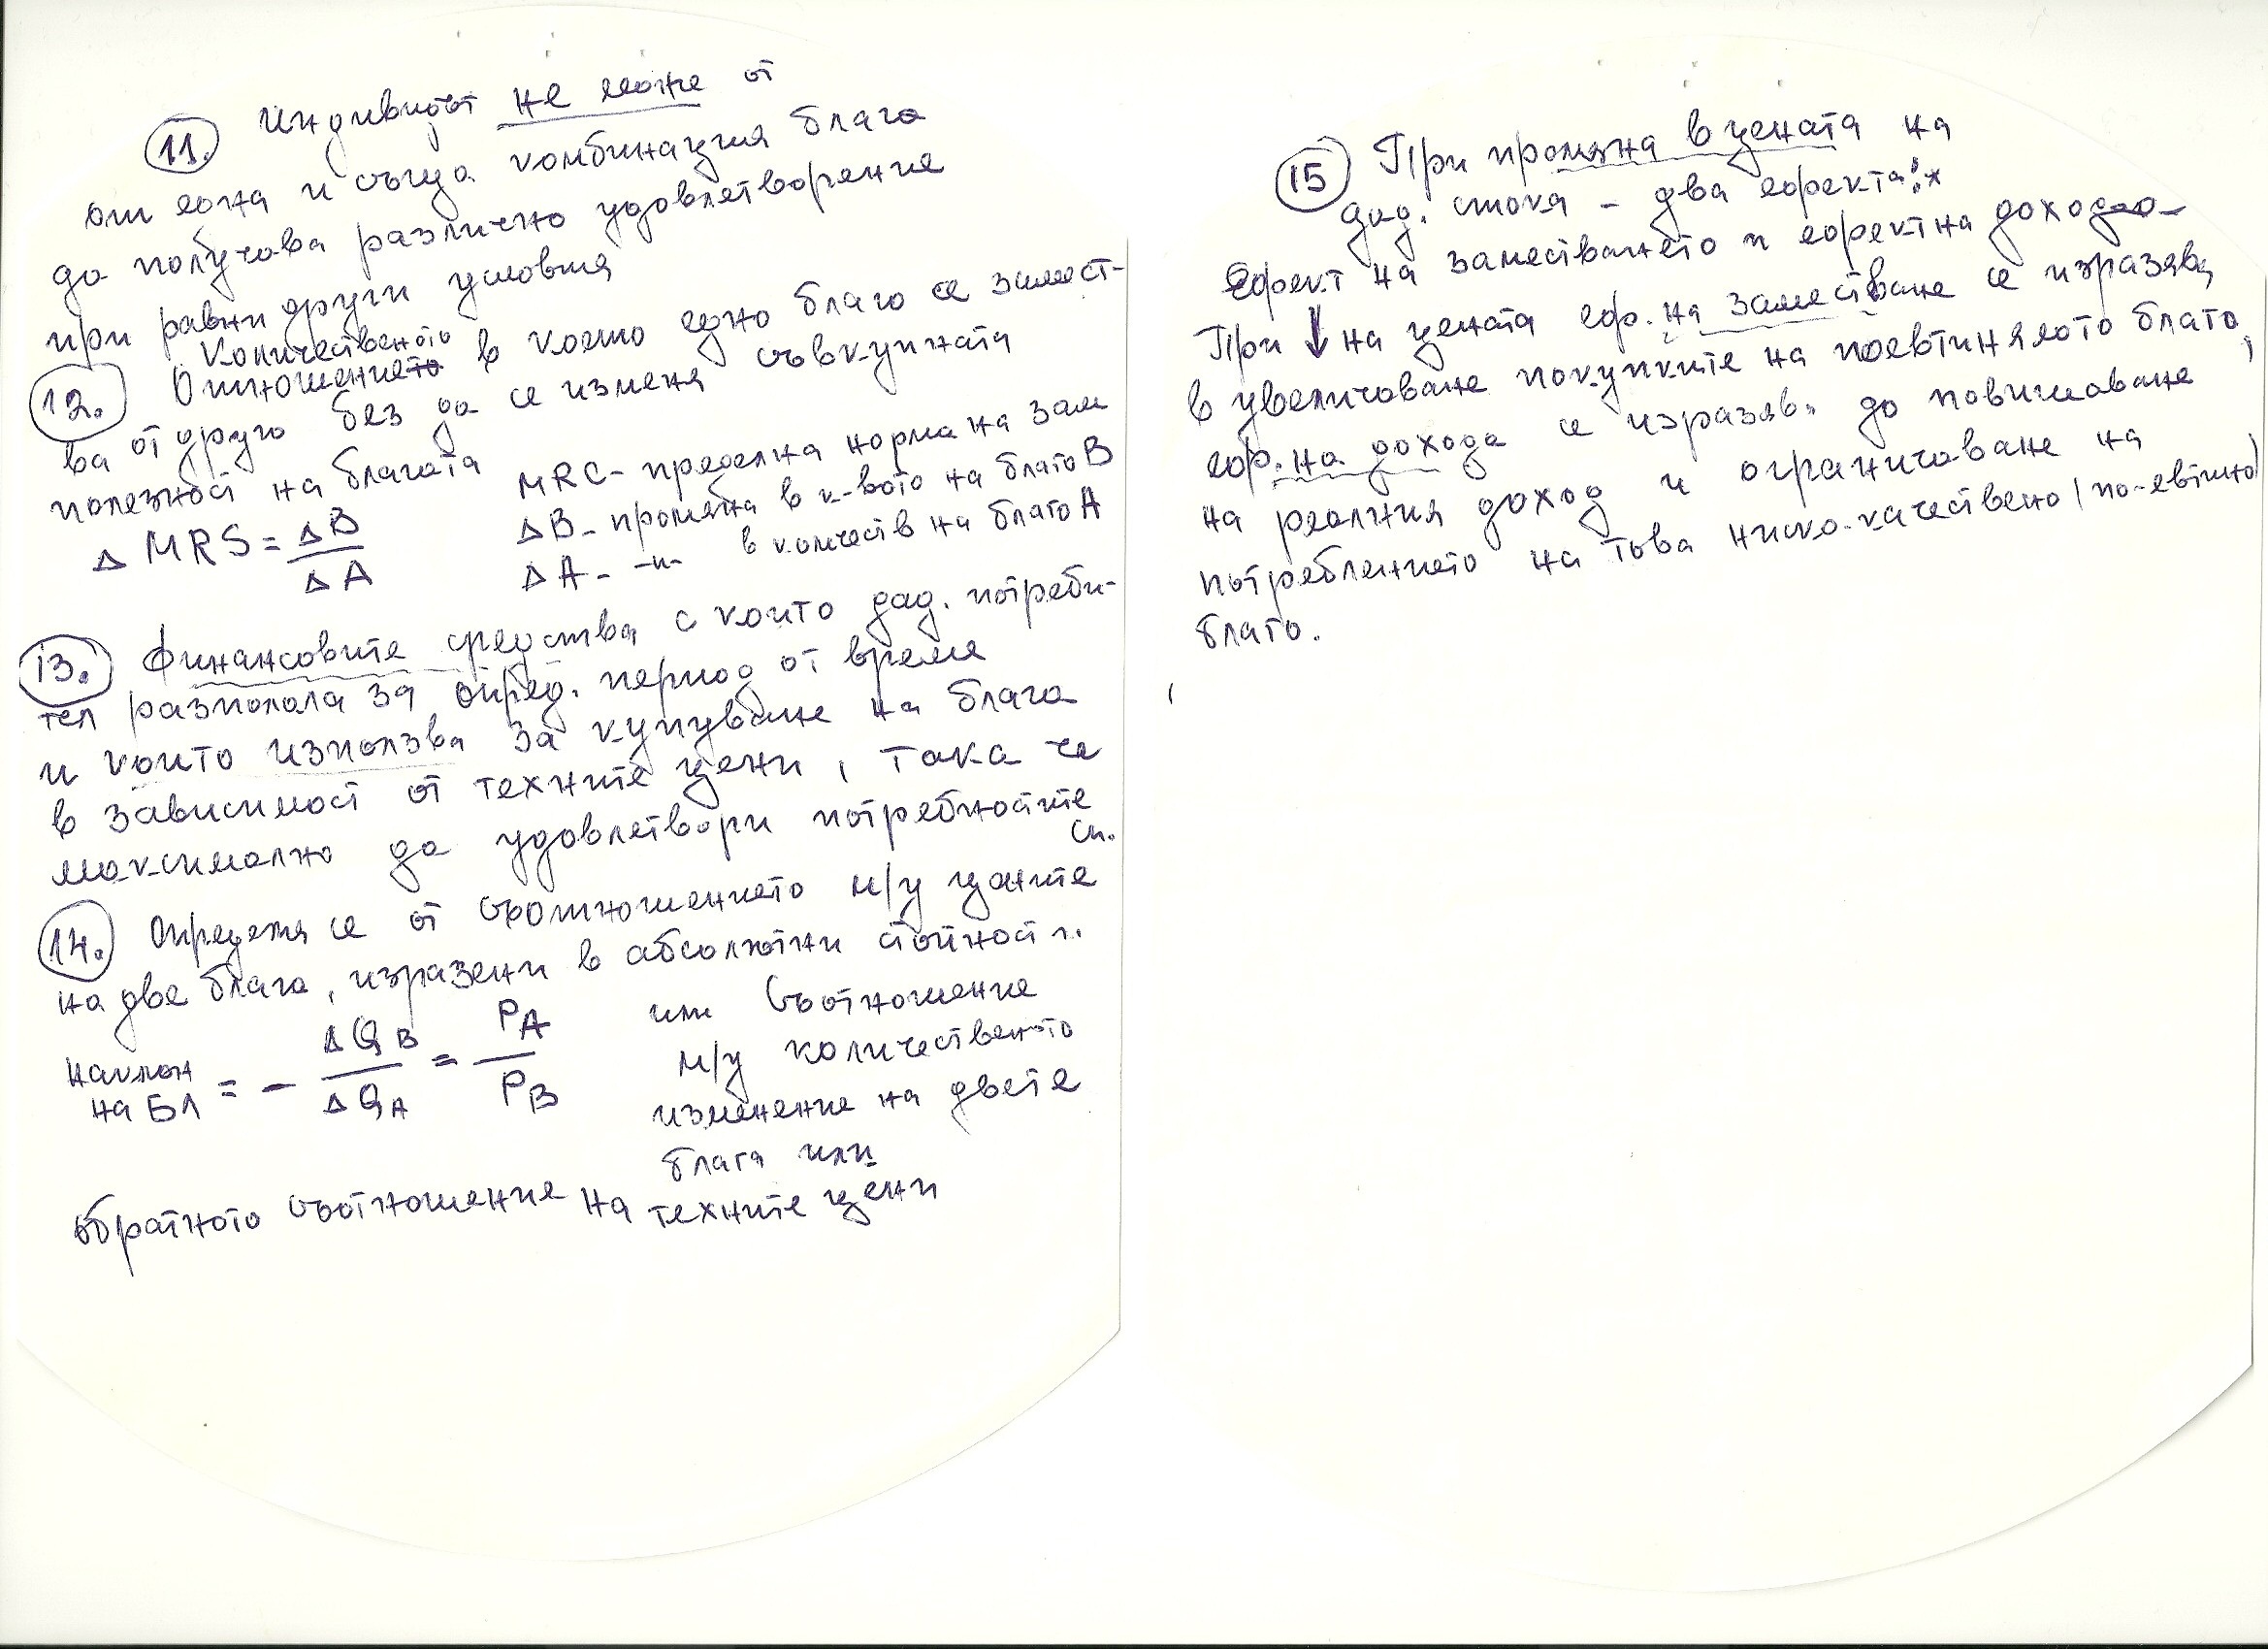 11. Индивидът не може от
една и съща комбинация блага
да получава различно удовлетворение
при равни други условия
12. Количественото
Отношението в което едно благо се замест-
ва от друго без да се изменя съвкупната
полезност на благата
Δ MRS = ΔB / ΔA
MRC - пределна норма на зам
ΔB - промяна в к-вото на благо B
ΔA - -"- в количеств на благо A
13. Финансовите средства с които дад. потреби-
тел разполага за опред. период от време
и които използва за купуване на блага
в зависимост от техните цени, така че
максимално да удовлетвори потребностите
си.
14. Определя се от съотношението м/у цените
на две блага, изразени в абсолютни стойности.
наклон на БЛ = - ΔQB / ΔQA = PA / PB
или съотношение
м/у количественото
изменение на двете
блага или
обратното съотношение на техните цени
15 При промяна в цената на
дад. стока - два ефекта:
Ефект на заместването и ефект на дохода
При ↓ на цената еф. на заместване се изразява
в увеличаване покупките на поевтинялото благо,
еф. на дохода се изразяв. до повишаване
на реалния доход и ограничаване на
потреблението на това ниско-качествено (по-евтино)
благо.